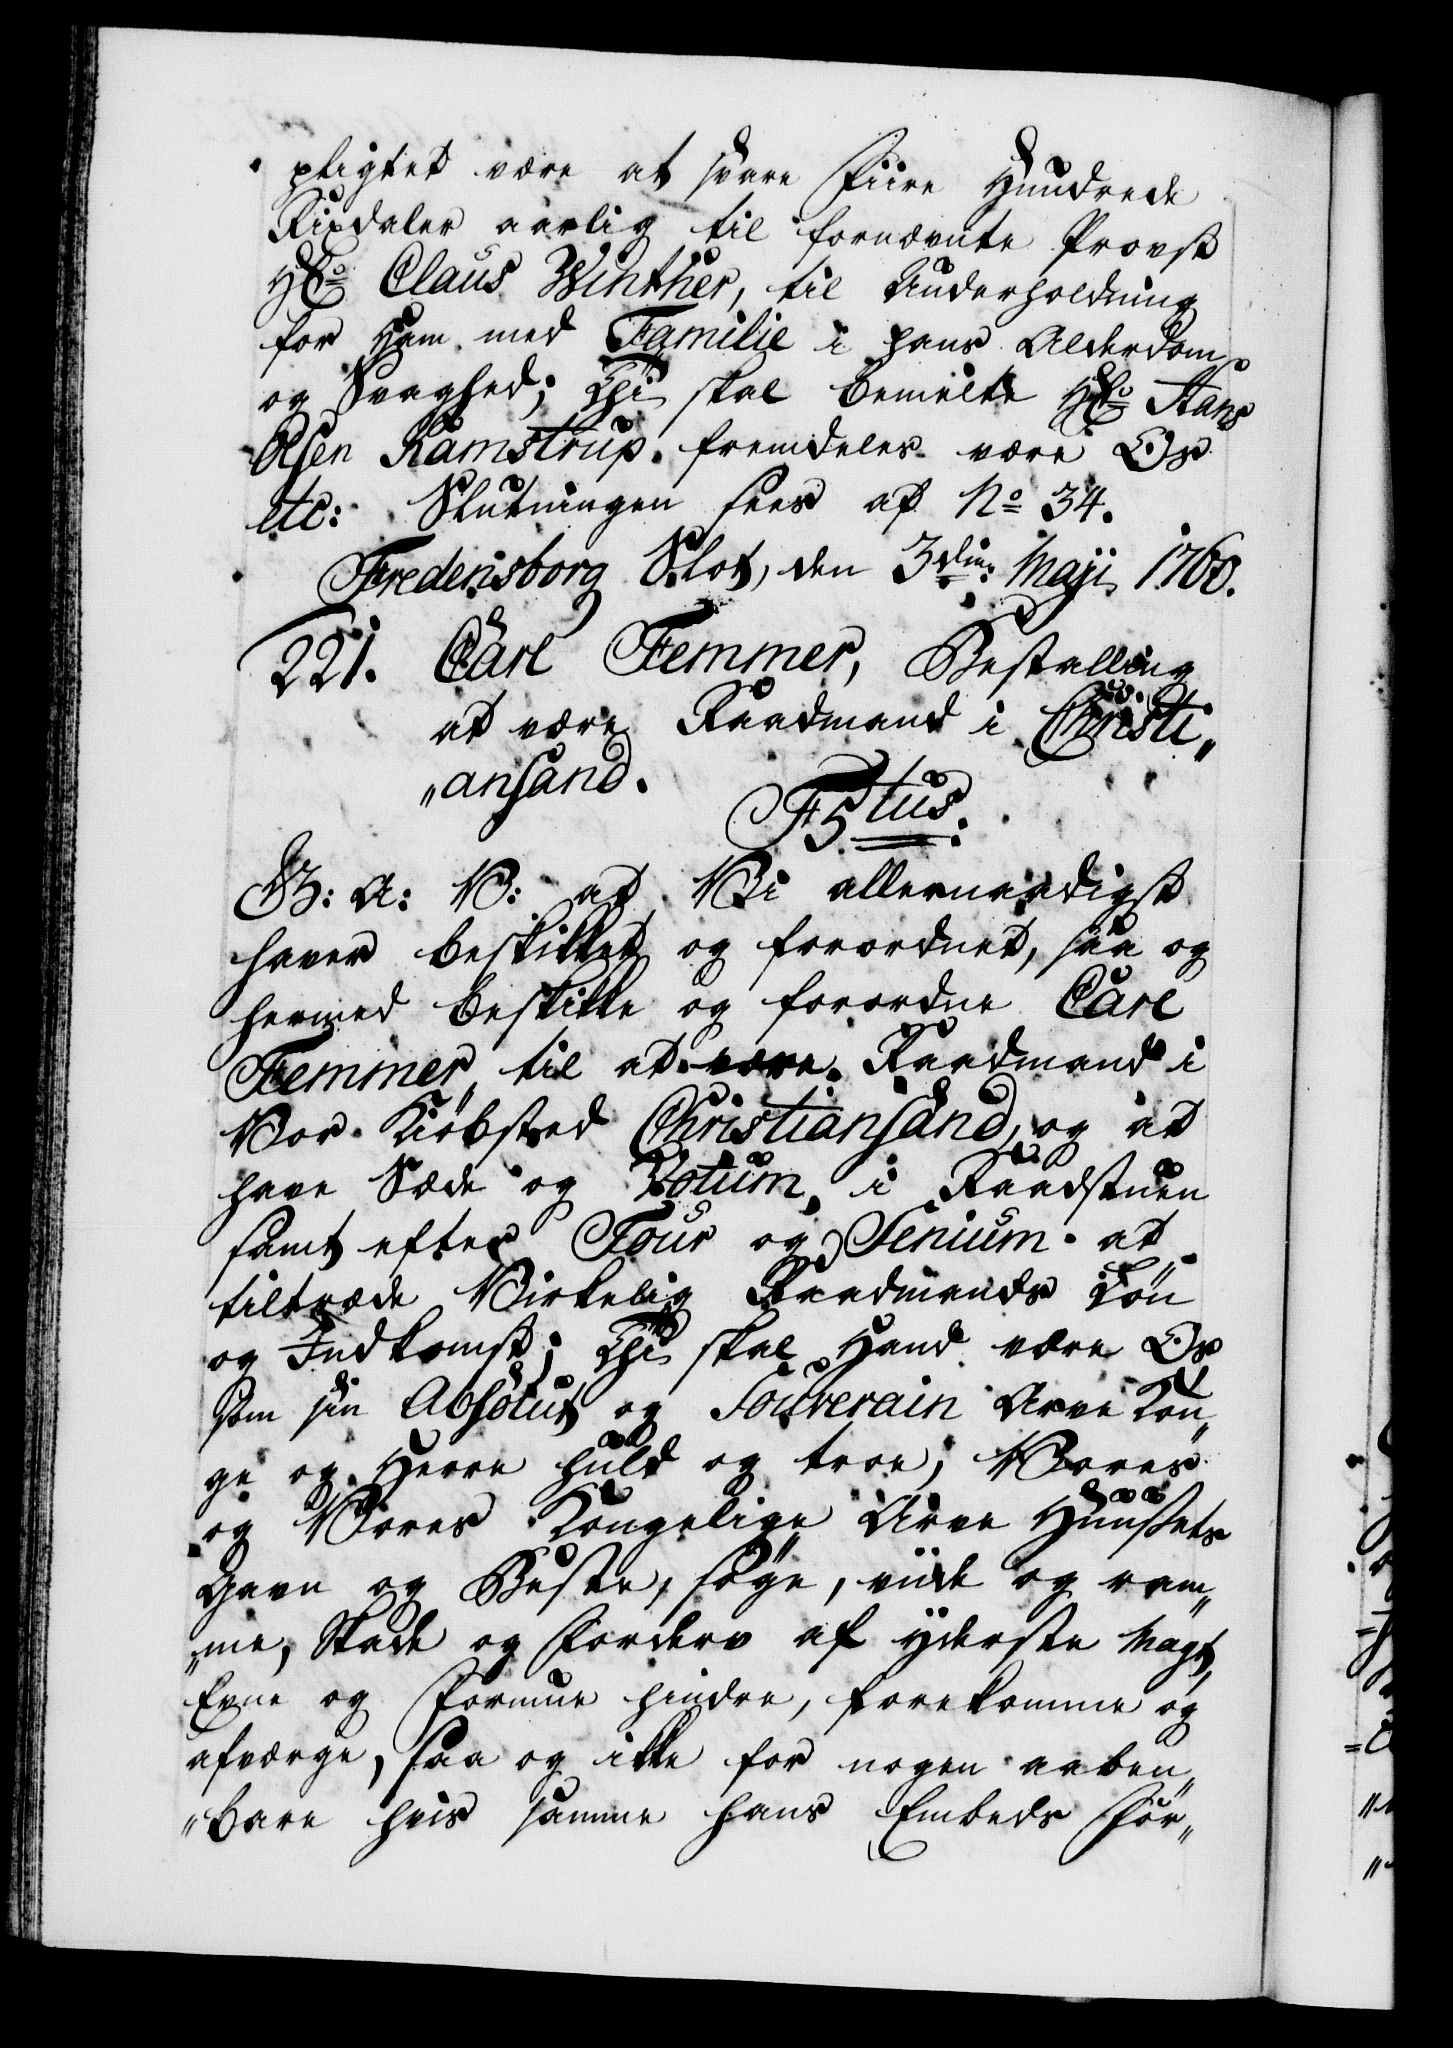 pligtet være at svare Fiire Hundrede
Rixdaler aarlig til fornævnte Provst
Hr. Claus Winther, til Underholdning
for Ham med Familie i hans Alderdom
og Svaghed; Thi skal bemelte Hr. Hans
Olsen Ramstrup fremdeles være Os
etc: Slutningen sees af No 34.
Fredensborg Slot, den 3die Maji 1760.
221. Carl Femmer, Bestalling
at være Raadmand i Christi„
„ansand.
F5tus.
G: A: V: at Vi allernaadigst
haver beskikket og forordnet, saa og
hermed beskikke og forordne Carl
Femmer til at være Raadmand i
Vor Kiøbsted Christiansand, og at
have Sæde og Votum i Raadstuen
samt efter Tour og Senium at
tiltræde Virkelig Raadmands Løn
og Indkomst; Thi skal Hand være Os
som sin Absolut og Souverain Arve Kon„
ge og Herre huld og troe, Vores
og Vores Kongelige Arve Huuses
Gavn og Beste, søge, viide og ram„
„me, Skade og Forderv af yderste Magt,
Evne og Formue hindre, forekomme og
afværge, saa og ikke for nogen aaben„
„bare hvis samme hans Embeds For„